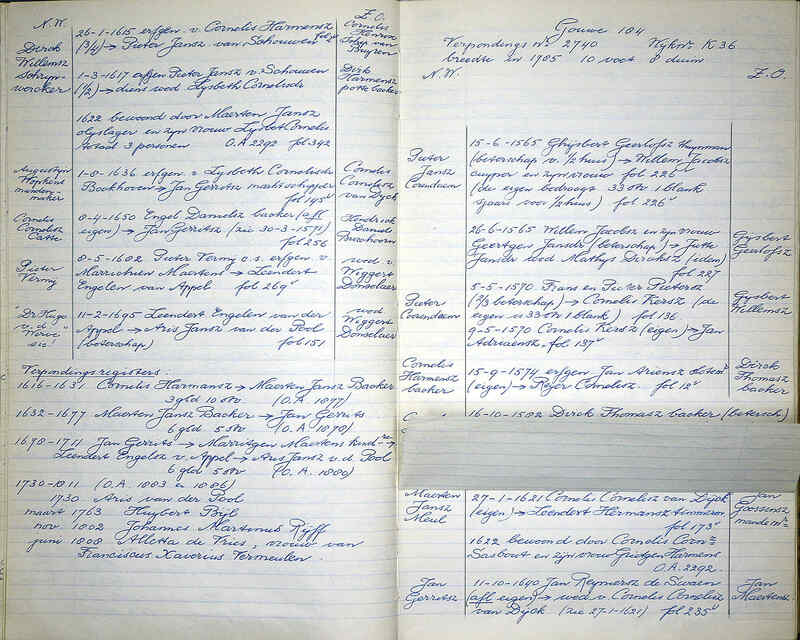 N.W.
Z.O.
26-1-1615 erfgen. v. Cornelis Harmensz
(3/4) → Pieter Jansz van Schouwen fol 9v
Dirck
Willemsz
schryn-
wercker
Cornelis
Henrick
van
Buyren
1-3-1617 erfgen Pieter Jansz v. Schouwen
(1/2) → diens wed Lysbeth Cornelisdr
Dirk
Harmensz
potte backer
1622 bewoond door Maerten Jansz
olyslager en zyn vrouw Lysbet Cornelis
totaal 3 personen O.A 2292 fol 342
Augustyn
Hopkens
manden-
maker
1-8-1636 erfgen. v Lysbeth Cornelisdr
Backhoven → Jan Gerritsz marktschipper
fol 195v
Cornelis
Cornelisz
van Dyck
Cornelis
Cornelisz
Catte
8-4-1650 Engel Danielsz backer (afl
eigen) → Jan Gerritsz (zie 30-3-1571)
fol 256
Hendrick
Daniel
Pieter
Vermy
8-5-1682 Pieter Vermy c.s. erfgen v.
Marrichen Maertens → Leendert
Engelen van Appel fol 269v
wed v
Wiggert
Donselaer
"Dr Hugo
v.d.
Werve
sis"
11-2-1695 Leendert Engelen van der
Appel → Aris Jansz van der Pool
(beterschap) fol 151
wed
Wiggert
Donselaer
Verpondingsregisters:
1616-1631 Cornelis Harmansz → Maerten Jansz Backer
3 gld 10 stv (O.A. 1877)
1632-1677 Maerten Jansz Backer → Jan Gerrits
6 gld 5 stv (O.A. 1878)
1678-1711 Jan Gerrits → Marritgen Maertens kindren →
Leendert Engelsz v. Appel → Aris Jansz v.d. Pool
6 gld 5 stv (O.A. 1880)
1730-1811 (O.A. 1883 en 1886)
1730 Aris van der Pool
maart 1763 Huybert Byl
nov. 1802 Johannes Martinus Rijff
juni 1808 Alletta de Vries, vrouw van
Franciscus Xaverius Vermeulen.
Gouwe 104
Verpondings No 2740 Wykno K 36
breedte in 1785 10 voet 8 duim
N.W.
Z.O.
Pieter
Jansz
Corenheen
15-6-1565 Ghysbert Geerlofsz
(beterschap v. 1/2 huis) → Willem Jacobsz
cuyper en zyn vrouw fol 226v
(de eigen bedraagt 33 stv 1 blank
sjaars voor 1/2 huis) fol 226v
26-6-1565 Willem Jacobsz en zyn vrouw
Geertgen Jansdr (beterschap) → Jutte
Jansdr wed Mathys Dircksz (idem)
fol 227
Gysbert
Geerlofsz
Pieter
Corenheen
5-5-1570 Frans en Pieter Pietersz
(2/3 beterschap) → Cornelis Kersz (de
eigen is 33 stv 1 blank) fol 136
9-5-1570 Cornelis Kersz (eigen) → Jan
Adriaensz fol 137v
Gysbert
Willemsz
Cornelis
Harmensz
backer
15-9-1574 erfgen Jan Ariensz
(eigen) → Reyer Cornelisz. fol 12v
Dirck
Thomasz
backer
16-10-1582 Dirck Thomasz backer (betersch)
Maerten
Jansz
Meul
27-1-1621 Cornelis Cornelisz van Dijck
(eigen) → Leendert Hermansz timmerman
fol 173v
Jan
Goossensz
mandemr
1622 bewoond door Cornelis Cornsz
Sasbout en zyn vrouw Grietgen Harmens
O.A. 2292
Jan
Gerritsz
11-10-1640 Jan Reyniersz de Swaen
(afl eigen) → wed. v. Cornelis Cornelisz
van Dijck (zie 27-1-1621) fol 235v
Jan
Maertensz